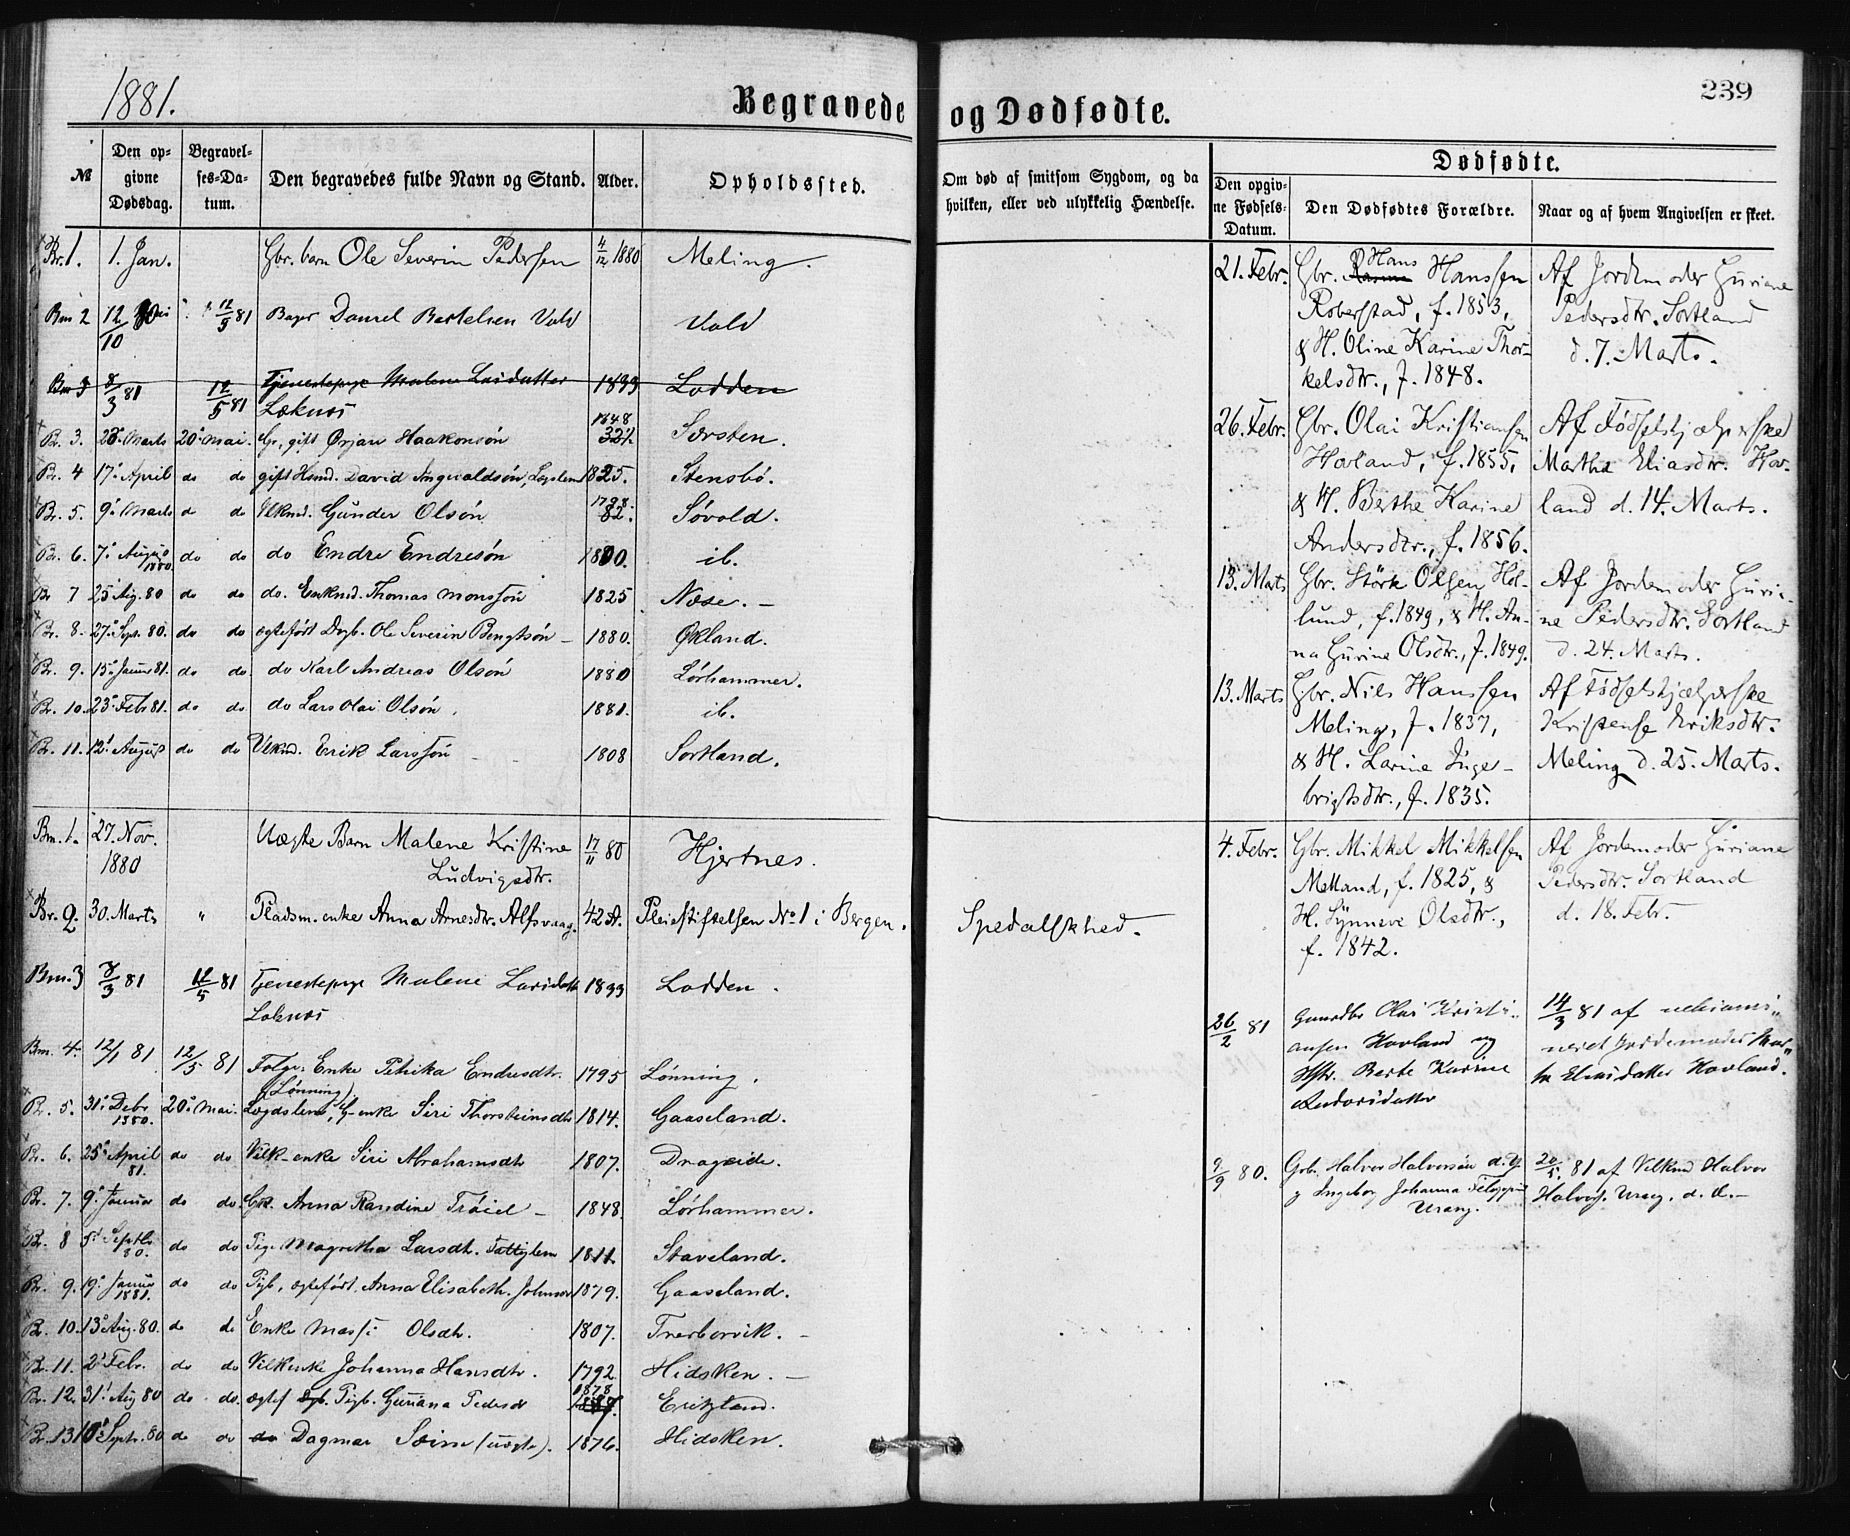 1881.
Begravede og Dødfødte.
239
№
Den opgivne Dødsdag.
Begravelses-Datum.
Den begravedes fulde Navn og Stand.
Alder.
Opholdssted.
Om død af smitsom Sygdom, og da hvilken, eller ved ulykkelig Hændelse.
Dødfødte.
Den opgivne Fødsels-Datum.
Den Dødfødtes Forældre.
Naar og af hvem Angivelsen er skeet.
Br. 1. 1. Jan. Gbr. barn Ole Severin Pedersen 4/12 1880 Meling.
Bm 2 12/10 80 12/5 81 Daniel Bertelsen Vold Vold
Bm 3 8/3 81 12/5 81 Tjenestepige Malene Larsdatter 1833 Lodden
Løknes
Br. 3. Marts 20de Mai. gift Ørjan Haakonsøn 1848 Særsten.
Br. 4 17de April do do gift Husmd. David Ingvaldsøn, Lægslem 1825. Stensbø.
Br. 5. 9de Marts d do Vlkmd. Gunder Olsøn 1798 82. Søvold.
Br. 6. 7de August 1880. do do do Endre Endresøn 1800. ib.
Br 7 25de Aug. 80 do do do. Enkmd. Thomas Monssøn 1825 Næse. –
Br. 8. 27de Sept. 80. do do ægtefødt Dgb. Ole Severin Bengtsøn – 1880. Økland.
Br. 9. 15de Januar 81. do do. do Karl Andreas Olsøn 1880 Lørhammer.
Br. 10. 23de Feb 81. do do do Lars Olai Olsøn. 1881. ib.
Br. 11. 12te August do do Vlkmd. Erik Larssøn 1808 Sortland.
Bm. 1. 27. Nov. 1880 Uægte Barn Malene Kristine 17/11 80 Hjertnes.
Ludvigsdtr.
Br. 2. 30. Marts " Pladsm. enke Anna Arnesdtr. Alfsvaag. 42 A. Pleiestiftelsen No 1 i Bergen. Spedalskhed.
Bm. 3 8/3 81 12/5 81 Tjenestepige Malene Larsdatt 1833 Lodden.
Løknes
Bm. 4. 12/1 81 12/5 81 Folge. Enke Petrika Endresdtr. 1795 Lønning.
(Lønning)
Br. 5. 31te Debr 1880. 20de Mai. Lægdslem, G-enke Siri Thorsteinsdtr 1814. Gaaseland.
Br. 6. 25de April 81. do do Vilk-enke Siri Abrahamsdtr 1807. Drageide.
Br. 7. 9de Januar do do. Gk. Anna Randine Trøiel – 1848. Lørhammer.
Br. 8 5te Septbr 80. do do Pige Magretha Larsdtr. Fattiglem 1811. Staveland.
Br. 9. 19de Januar 1881. do do Pigb, ægtefødt, Anna Elisabeth Johnsdr 1879. Gaaseland.
Br. 10. 13de Aug. 80. do do Enke Massi Olsdtr. 1807. Tverborvik. –
Br. 11. 2den Febr. do do Vilkenke Johanna Hansdtr. 1792. Hidsken. –
Br. 12. 31te Aug 80 do do. ægtef Pigb. Guriana Pedersd 1878 Erikland.
Br. 13 10de Septr. 80 do do do Dagmar Sæim (uægte). 1876. Hidsken.
21. Febr. Gbr. Hans Hanssen
Roberstad, f. 1853,
& H. Oline Karine Thor-
kelsdtr., f. 1848.
Af Jordemoder Guriane
Pedersdtr. Sortland
d. 7. Marts.
26. Febr. Gbr. Olai Kristiansen
Hovland, f. 1855,
& H. Berthe Karine
Andersdtr., f. 1856.
Af Fødselshjælperske
Marthe Eliasdtr. Hov-
land d. 14. Marts.
13. Marts Gbr. Størk Olsen Hol-
lund, f. 1849, & H. An-
na Gurine Olsdtr., f. 1849.
Af Jordemoder Guria-
ne Pedersdtr. Sortland
d. 24. Marts.
13. Marts Gbr. Nils Hanssen
Meling, f. 1837,
& H. Larine Inge-
brigtsdtr., f. 1835.
Af Fødselshjælperske
Kristense Eriksdtr.
Meling d. 25. Marts.
4. Febr. Gbr. Mikkel Mikkelsen
Melland, f. 1825, &
H. Synneve Olsdtr.,
f. 1842.
Af Jordemoder Guriane
Pedersdtr. Sortland
d. 18. Febr.
26/2 81 Gaardbr Olai Kristi-
ansen Hovland og
Hstr. Berte Karine
Andersdatter
14/3 81 af uexami-
neret Jordemoder Mar-
te Eliasdatter Hovland.
9/9 80. Grb. Halvor Halvorsøn d.y.
og Ingebor Johanna
Urang.
20/5 81 af Vilkmd Halvor
Halvors. Urang. d. æ. –